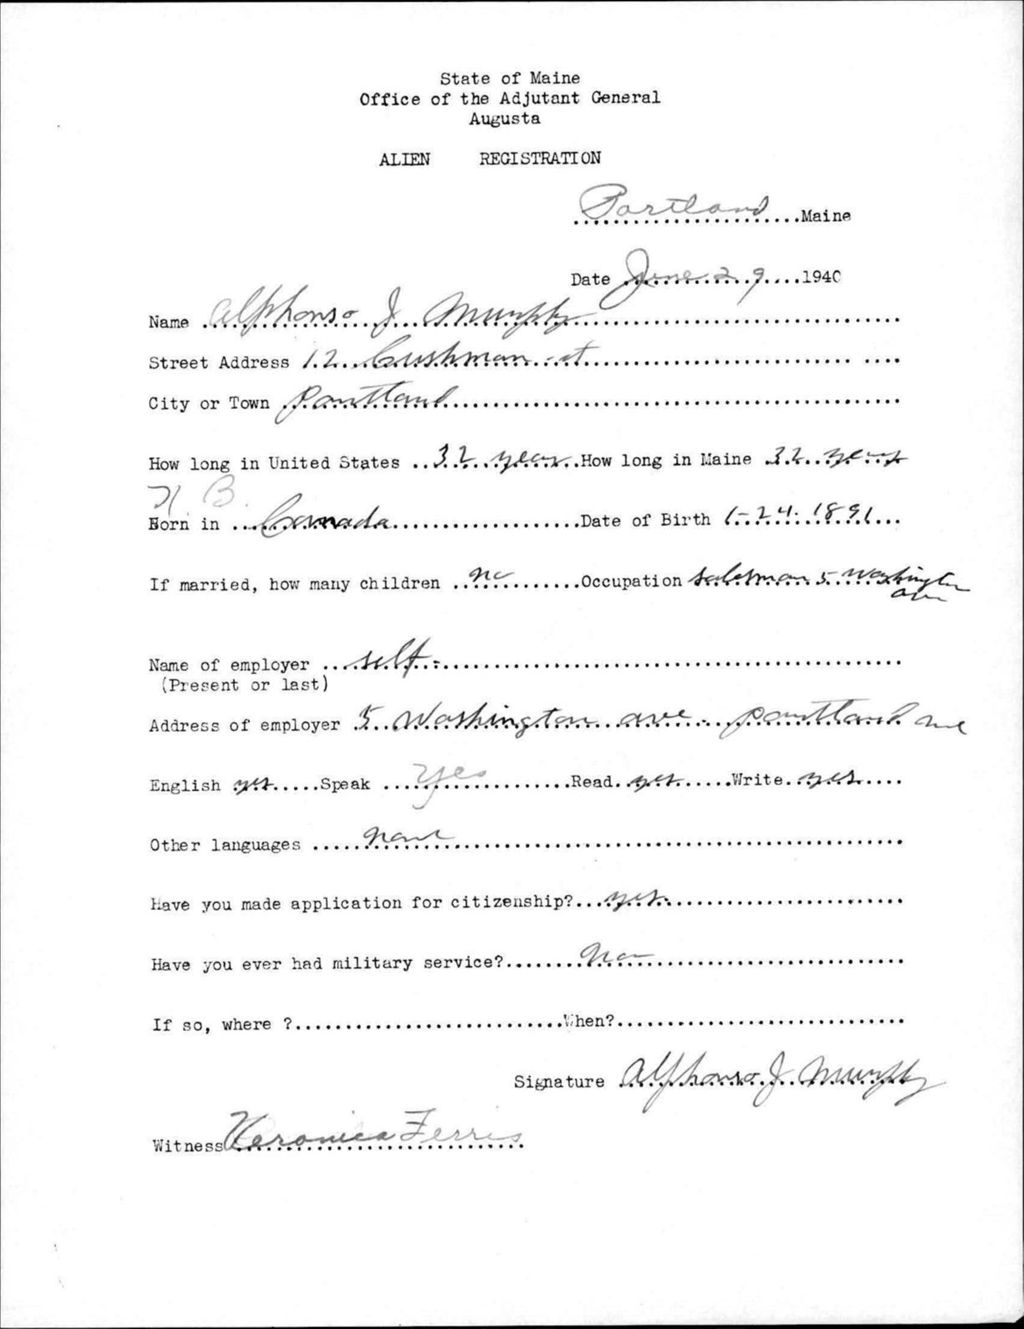 State of Maine
Office of the Adjutant General
Augusta
ALIEN REGISTRATION
Portland Maine
Date June 29 1940
Name Alphonso J Murphy
Street Address 12 Cushman st
City or Town Portland
How long in United States 32 years How long in Maine 32 years
N B.
Born in Canada Date of Birth 1-24-1891
If married, how many children no Occupation salesman 5 Washington
ave
Name of employer self-
(Present or last)
Address of employer 5 Washington ave Portland me
English yes Speak Yes Read yes Write yes
Other languages None
Have you made application for citizenship? yes
Have you ever had military service? No
If so, where ? When?
Signature Alphonso J Murphy
Witness Veronica Ferris